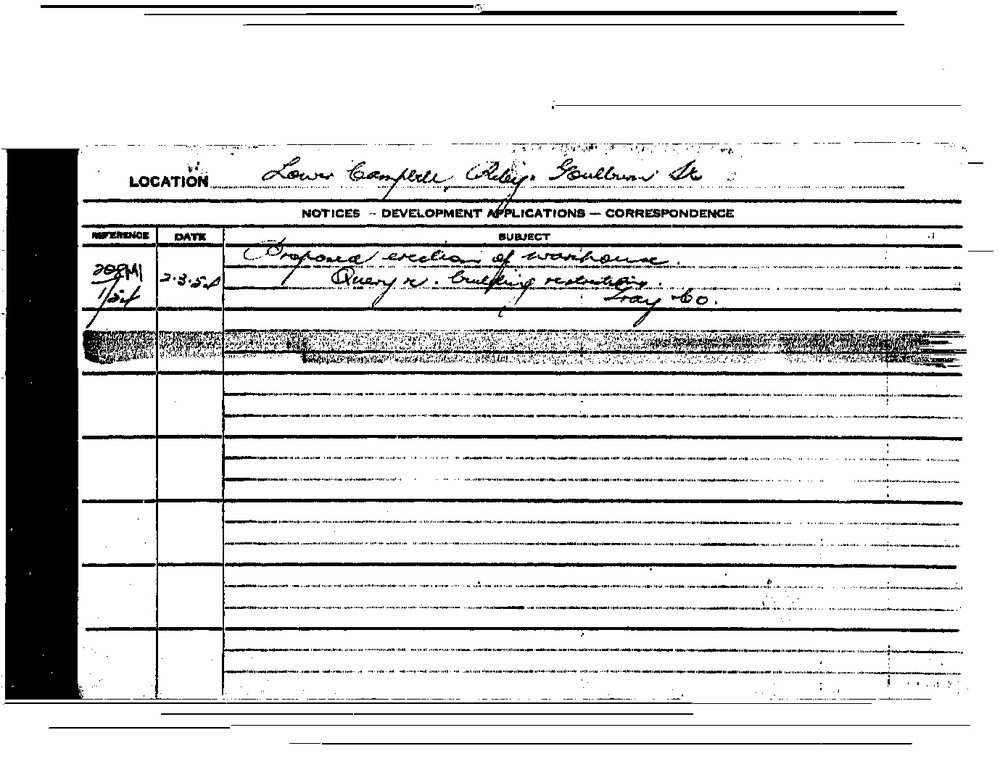 LOCATION Lower Campbell, Riley & Goulburn Sts
NOTICES — DEVELOPMENT APPLICATIONS — CORRESPONDENCE
REFERENCE DATE SUBJECT
Proposed erection of warehouse.
2.3.54 Query re. building restrictions.
1/54 Co.